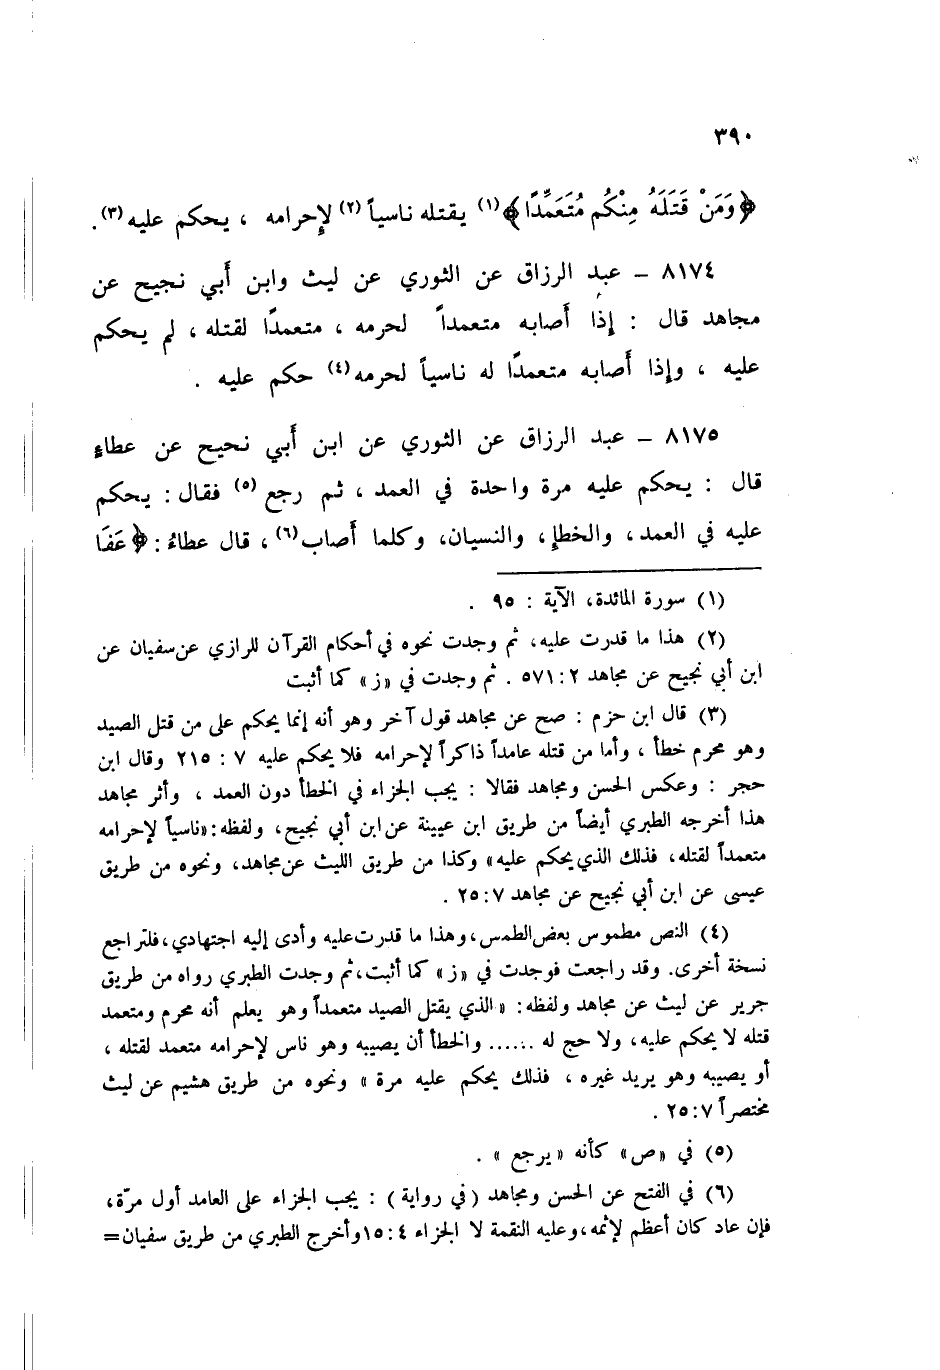 ٣٩٠
﴿وَمَنْ قَتَلَهُ مِنْكُم مُتَعَمِّدًا﴾(١) يقتله ناسياً(٢) لإحرامه ، يحكم عليه(٣).
٨١٧٤ – عبد الرزاق عن الثوري عن ليث وابن أبي نجيح عن
مجاهد قال : إذا أصابه متعمداً لحرمه ، متعمدًا لقتله ، لم يحكم
عليه ، وإذا أصابه متعمدًا له ناسياً لحرمه(٤) حكم عليه .
٨١٧٥ – عبد الرزاق عن الثوري عن ابن أبي نحيح عن عطاءٍ
قال : يحكم عليه مرة واحدة في العمد ، ثم رجع (٥) فقال : يحكم
عليه في العمد ، والخطإِ، والنسيان، وكلما أصاب(٦) ، قال عطاءُ : ﴿عَفَا
(١) سورة المائدة، الآية : ٩٥ .
(٢) هذا ما قدرت عليه، ثم وجدت نحوه في أحكام القرآن للرازي عن سفيان عن
ابن أبي نجيح عن مجاهد ٢ : ٥٧١ . ثم وجدت في «ز» كما أثبت
(٣) قال ابن حزم : صح عن مجاهد قول آخر وهو أنه إنما يحكم على من قتل الصيد
وهو محرم خطأ ، وأما من قتله عامداً ذاكراً لإحرامه فلا يحكم عليه ٧ : ٢١٥ وقال ابن
حجر : وعكس الحسن ومجاهد فقالا : يجب الجزاء في الخطأ دون العمد ، وأثر مجاهد
هذا أخرجه الطبري أيضاً من طريق ابن عيينة عن ابن أبي نجيح، ولفظه: «ناسياً لإحرامه
متعمداً لقتله، فذلك الذي يحكم عليه» وكذا من طريق الليث عن مجاهد، ونحوه من طريق
عيسى عن ابن أبي نجيح عن مجاهد ٧ : ٢٥ .
(٤) النص مطموس بعض الطمس، وهذا ما قدرت عليه وأدى إليه اجتهادي، فلتراجع
نسخة أخرى. وقد راجعت فوجدت في «ز» كما أثبت، ثم وجدت الطبري رواه من طريق
جرير عن ليث عن مجاهد ولفظه: «الذي يقتل الصيد متعمداً وهو يعلم أنه محرم ومتعمد
قتله لا يحكم عليه، ولا حج له ...... والخطأ أن يصيبه وهو ناس لإحرامه متعمد لقتله ،
أو يصيبه وهو يريد غيره ، فذلك يحكم عليه مرة» ونحوه من طريق هشيم عن ليث
مختصراً ٧ : ٢٥ .
(٥) في «ص» كأنه «يرجع» .
(٦) في الفتح عن الحسن ومجاهد (في رواية) : يجب الجزاء على العامد أول مرّة،
فإن عاد كان أعظم لإثمه، وعليه النقمة لا الجزاء ٤ : ١٥ وأخرج الطبري من طريق سفيان=